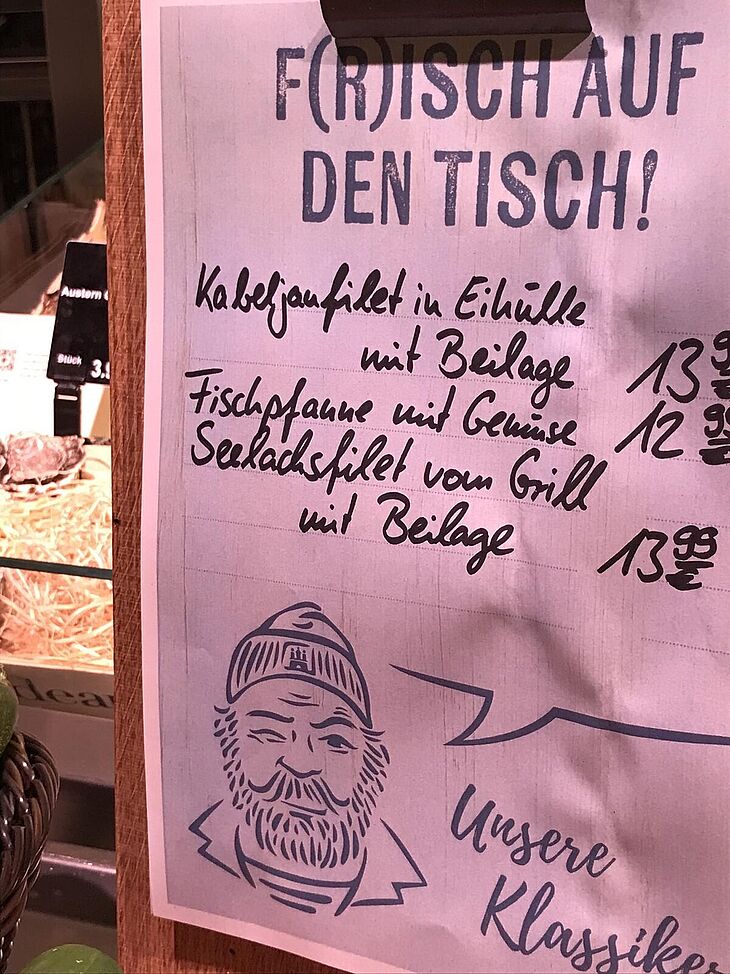 F(R)ISCH AUF
DEN TISCH!
Kabeljaufilet in Eihülle
mit Beilage 13 9
Fischpfanne mit Gemüse 12 99
Seelachsfilet vom Grill
mit Beilage 13 99 €
Unsere
Klassiker
Austern
Stück 3.